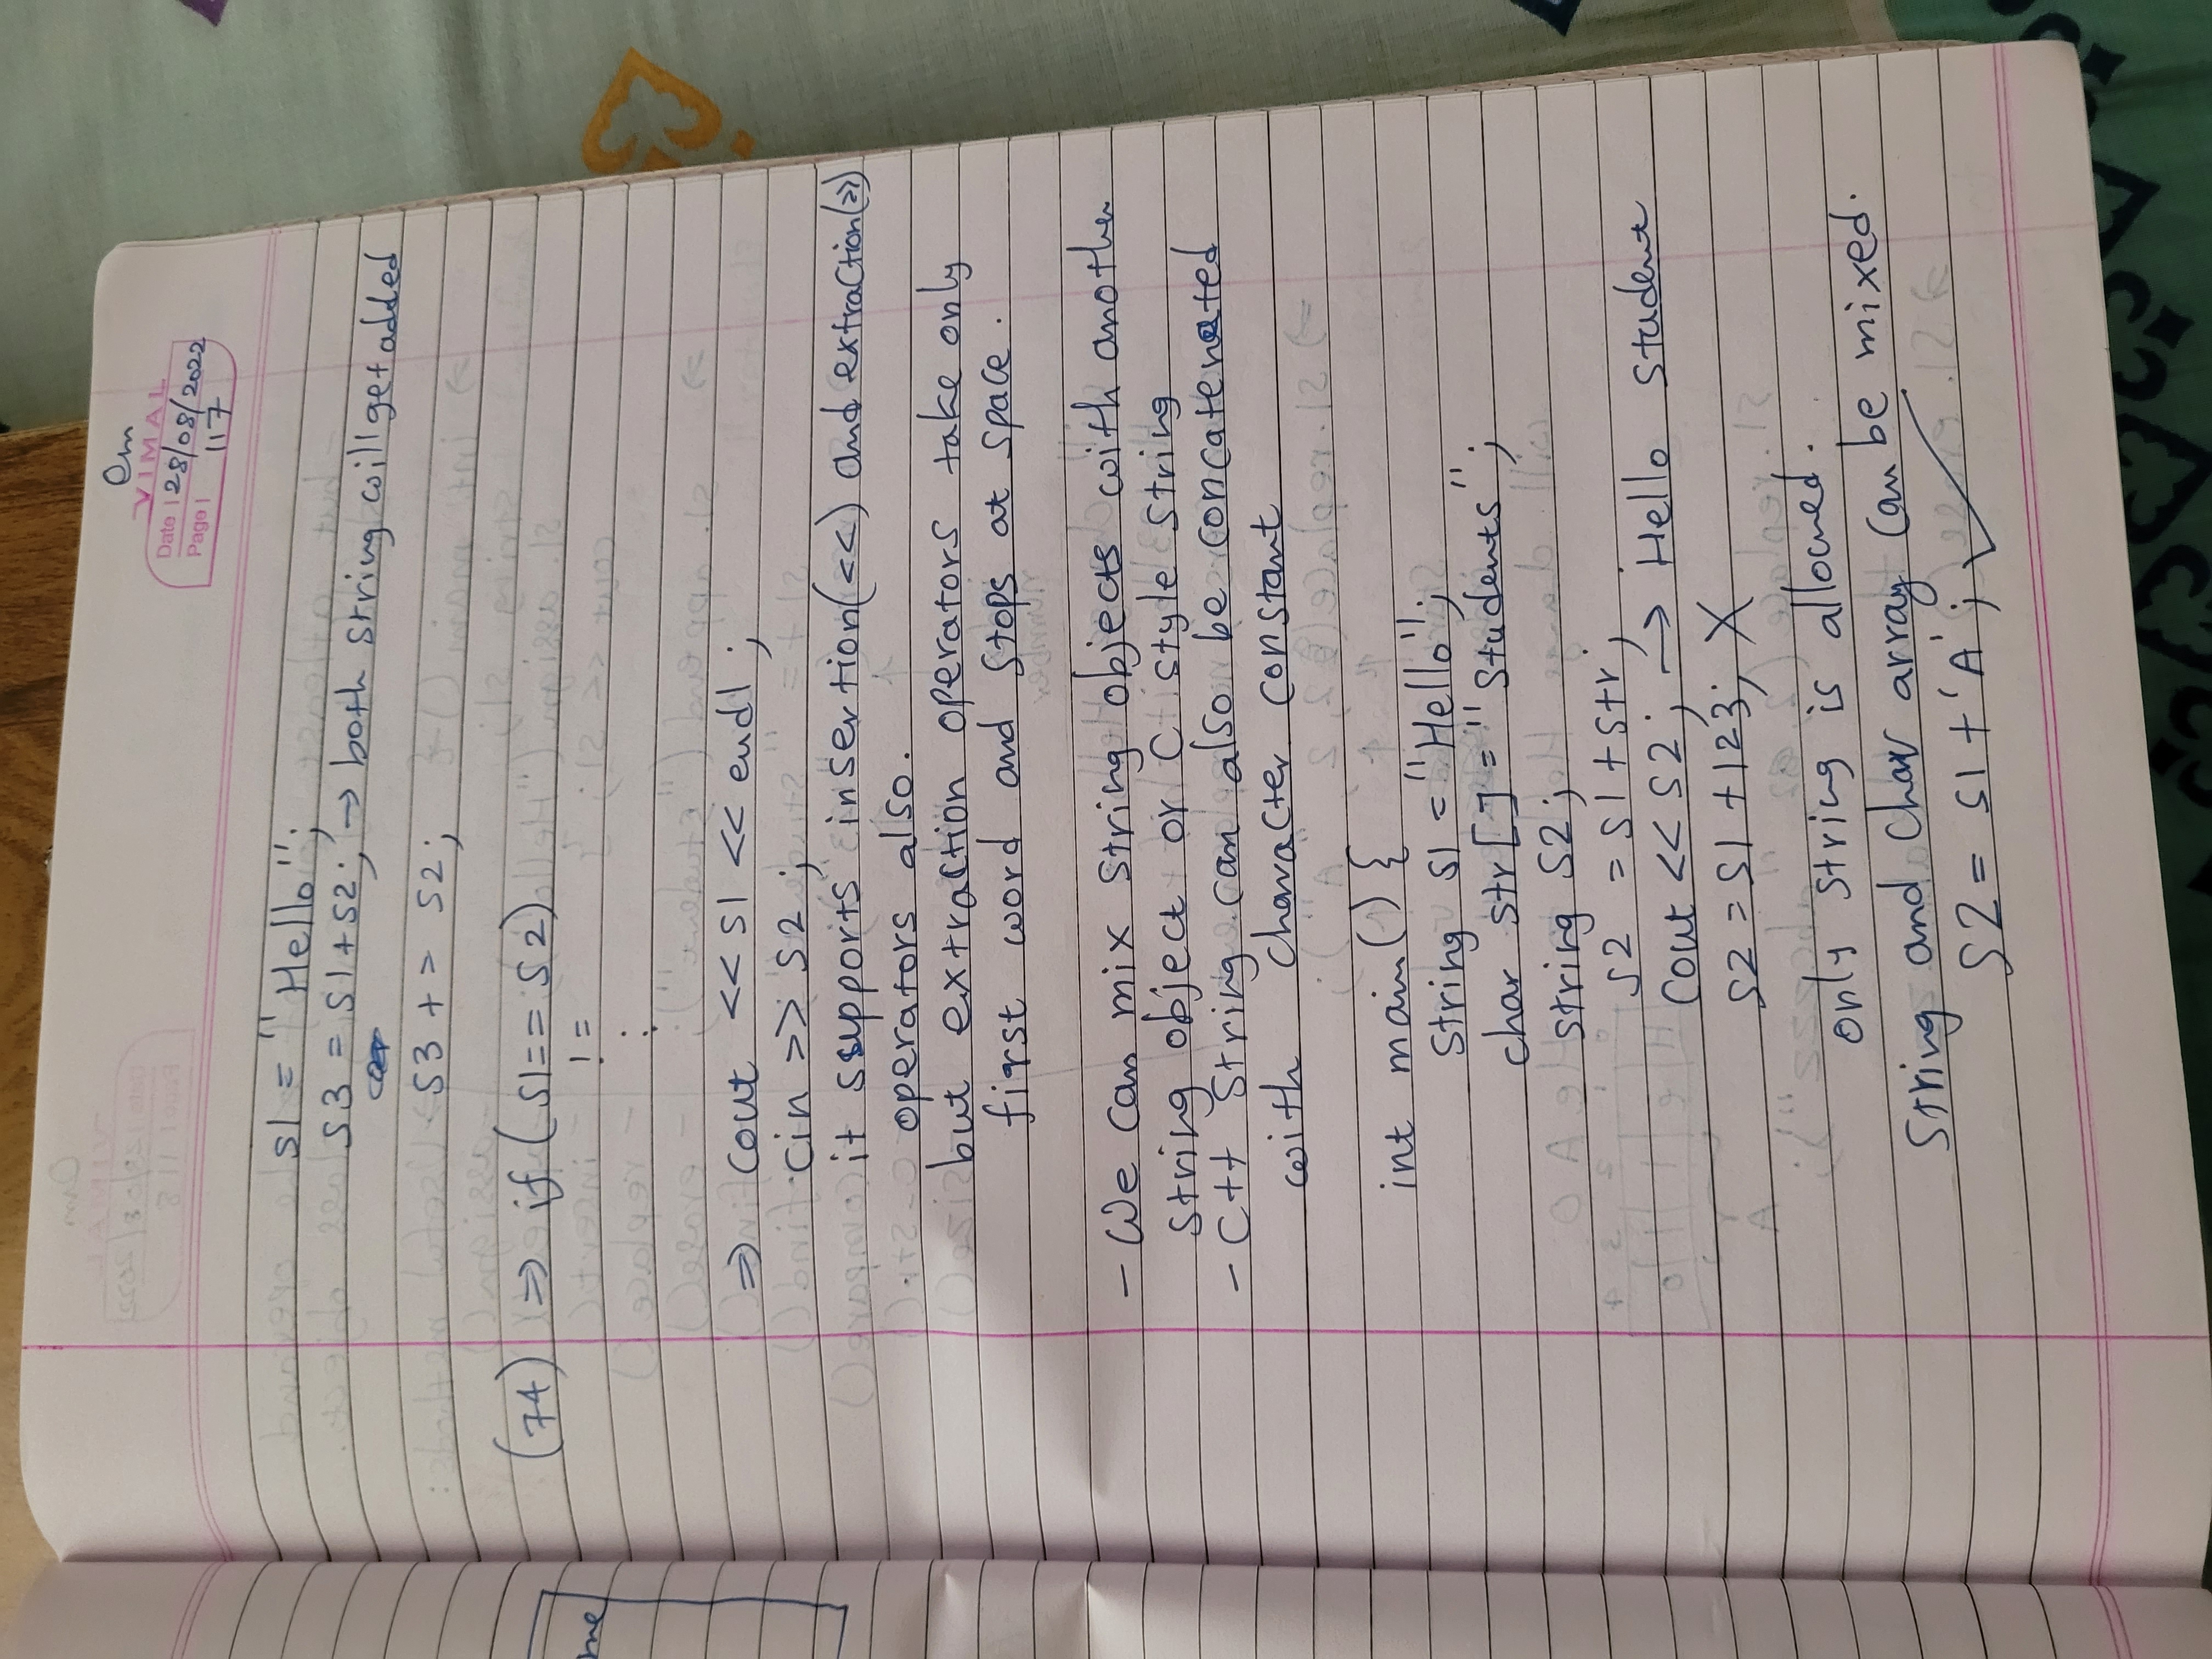 Om
VIMAL
Date | 28/08/2022
Page | 117
s1 = "Hello";
s3 = s1+s2; → both string will get added
s3 += s2;
(74) ⇒ if (s1== s2)
!=
:
⇒ cout << s1 << endl;
cin >> s2;
it supports insertion(<<) and extraction(>>)
operators also.
but extraction operators take only
first word and stops at space.
- We can mix string objects with another
string object or C style string
- C++ string can also be concatenated
with character constant
int main() {
string s1 = "Hello";
char str[] = "Students";
string s2;
s2 = s1+str;
cout << s2; → Hello student
s2 = s1 +123; X
only string is allowed.
string and char array can be mixed.
s2 = s1+'A'; ✓
me